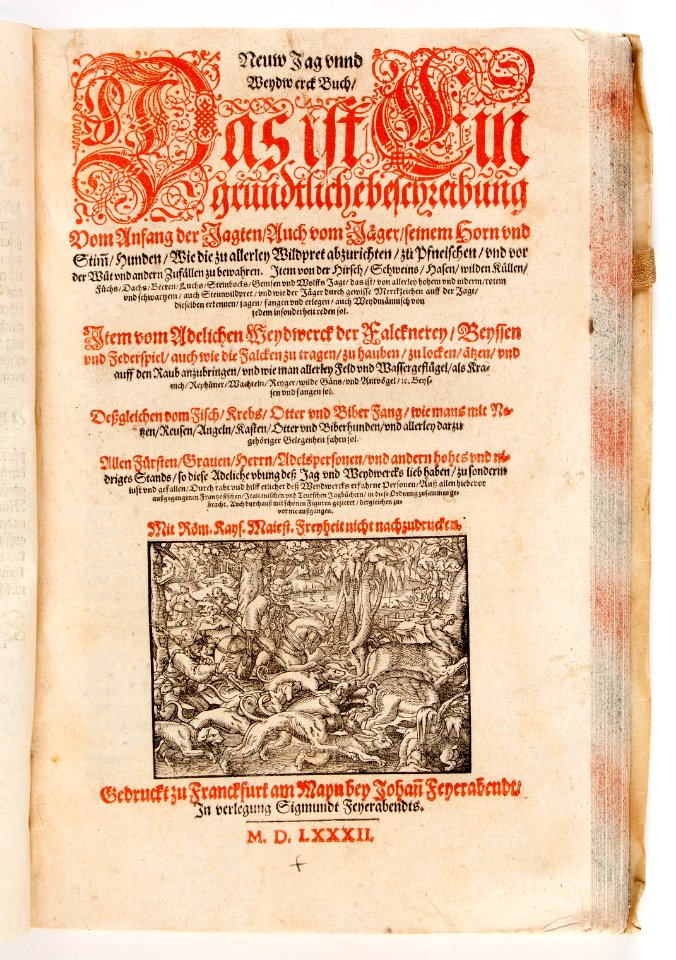 Neuw Jag vnnd
Weydwerck Buch/
Das ist Ein
grundtliche beschreibung
Vom Anfang der Jagten/Auch vom Jäger/seinem Horn vnd
Stim̃/Hunden/Wie die zu allerley Wildpret abzurichten/zů Pfneischen/vnd vor
der Wüt vnd andern Zufällen zu bewahren. Item von der Hirsch/Schweins/Hasen/wilden Küllen/
Füchs/Dachs/Beeren/Luchs/Steinbocks/Gemsen vnd Wolffs Jagt/das ist/von allerley hohem vnd niderm/rotem
vnd schwartzem/auch Steinwildpret/vnd wie der Jäger durch gewisse Merckzeichen auff der Jagt/
dieselben erkennen/jagen/fangen vnd erlegen/auch Weydmännisch von
jedem insonderheit reden sol.
Item vom Adelichen Weydwerck der Falcknerey/Beyssen
vnd Federspiel/auch wie die Falcken zu tragen/zu hauben/zu locken/ätzen/vnd
auff den Raub anzubringen/vnd wie man allerley Feld vnd Wassergeflügel/als Kra-
nich/Rephüner/Wachteln/Reyger/wilde Gäns/vnd Antvögel/ꝛc. Beys-
sen vnd fangen sol.
Deßgleichen vom Fisch/Krebs/Otter vnd Biber Fang/wie mans mit Ne-
tzen/Reusen/Angeln/Kasten/Otter vnd Biberhunden/vnd allerley darzu
gehöriger Gelegenheit fahen sol.
Allen Fürsten/Grauen/Herrn/Adelspersonen/vnd andern hohes vnd ni-
driges Stands/so diese Adeliche vbung deß Jag vnd Weydwercks lieb haben/zu sonderm
lust vnd gefallen/Durch raht vnd hilff etlicher deß Weydwercks erfahrne Personen/Auß allen hiebevor
außgegangenen Frantzösischen/Italianischen vnd Teutschen Jagbüchern/in diese Ordnung zusammen ge-
bracht. Auch durchauß mit schönen Figuren gezieret/dergleichen zu-
vor nie außgangen.
Mit Röm. Kays. Maiest. Freyheit nicht nachzudrucken.
Gedruckt zu Franckfurt am Mayn bey Johan̄ Feyerabendt/
In verlegung Sigmundt Feyerabendts.
M. D. LXXXII.